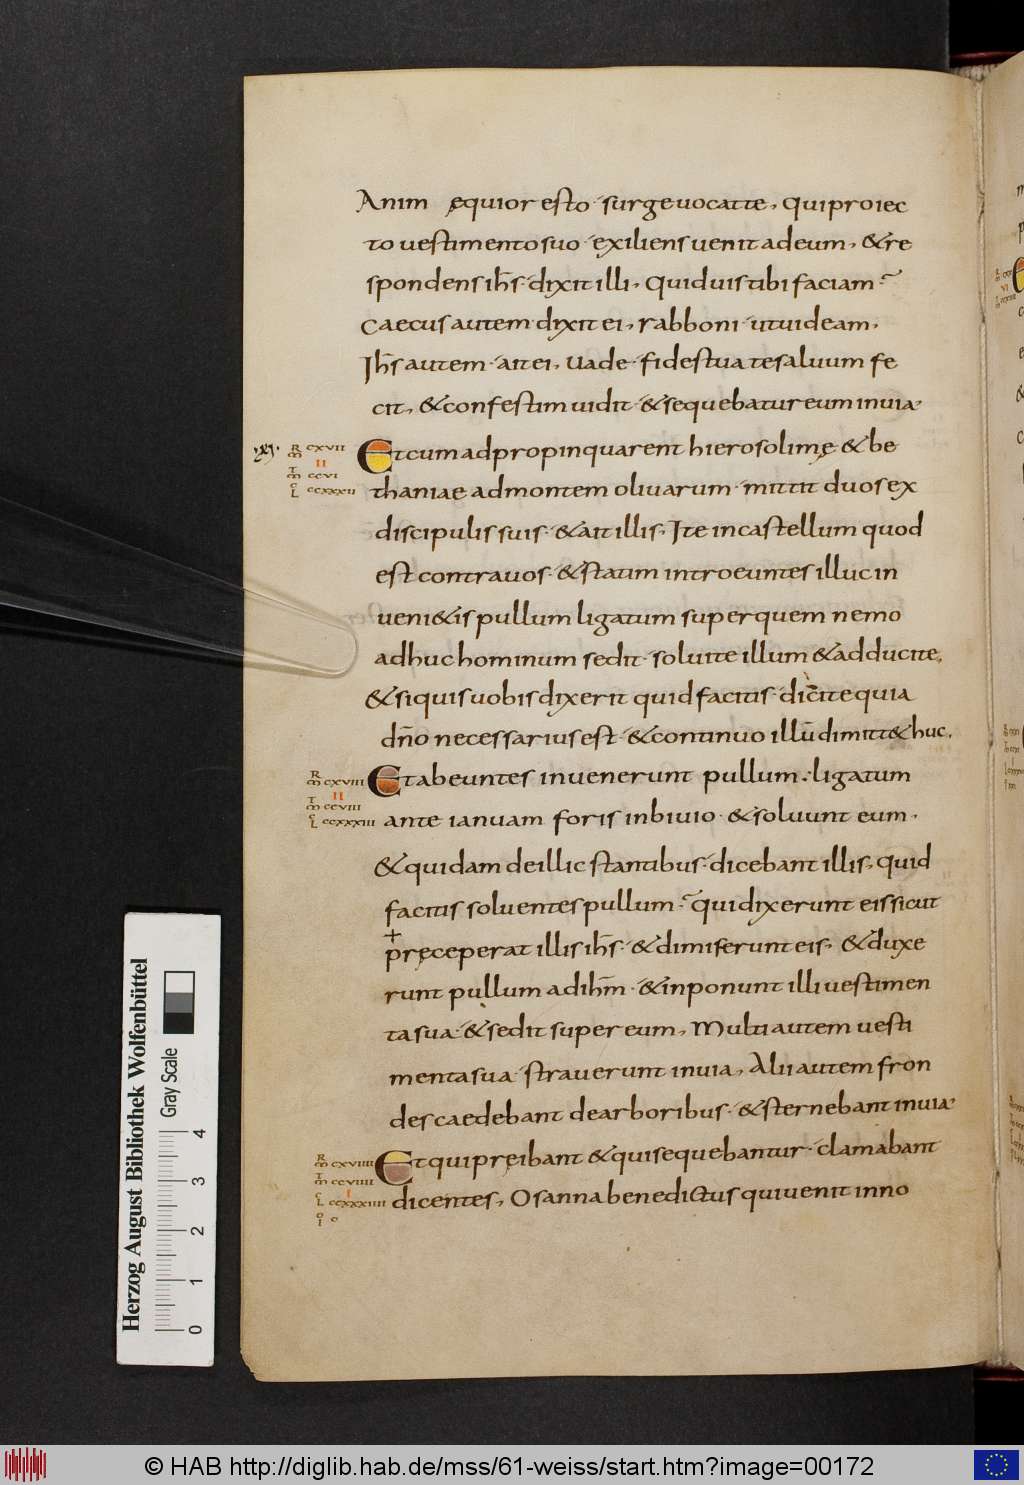 Anim ęquior esto · surge vocat te, qui proiec
to vestimento suo · exiliens venit ad eum, & re
spondens ih̅s · dixit illi, Quid vis tibi faciam?
Caecus autem · dixit ei, rabboni · ut videam,
Ih̅s autem · ait ei, Vade · fides tua te saluum fe
cit, & confestim vidit · & sequebatur eum in via·
R M CXVII
II
T M CCVI
C L CCXXXII
Et cum adpropinquarent hierosolimę & be
thaniae ad montem olivarum · mittit duos ex
discipulis suis · & ait illis, Ite in castellum quod
est contra vos · & statim introeuntes illuc in
veni&is pullum ligatum super quem nemo
adhuc hominum sedit · solvite illum & adducite,
& si quis vobis dixerit quid facitis · dicite quia
dn̅o necessarius est · & continuo illu̅ dimitt& huc,
R M CXVIII
II
T M CCVIII
C L CCXXXIII
Et abeuntes invenerunt pullum · ligatum
ante ianuam foris in bivio · & solvunt eum,
& quidam de illic stantibus · dicebant illis, quid
facitis solventes pullum? qui dixerunt eis sicut
pręceperat illis ih̅s · & dimiserunt eis, & duxe
runt pullum ad ihm̅ · & inponunt illi vestimen
ta sua · & sedit super eum, Multi autem vesti
menta sua · straverunt in via, Alii autem fron
des caedebant de arboribus · & sternebant in via·
R M CXVIIII
T M CCVIIII
I
C L CCXXXIIII
O I C
Et qui pręibant & qui sequebantur · clamabant
dicentes, Osanna benedictus qui venit in no
Herzog August Bibliothek Wolfenbüttel
Gray Scale
0 1 2 3 4
© HAB http://diglib.hab.de/mss/61-weiss/start.htm?image=00172